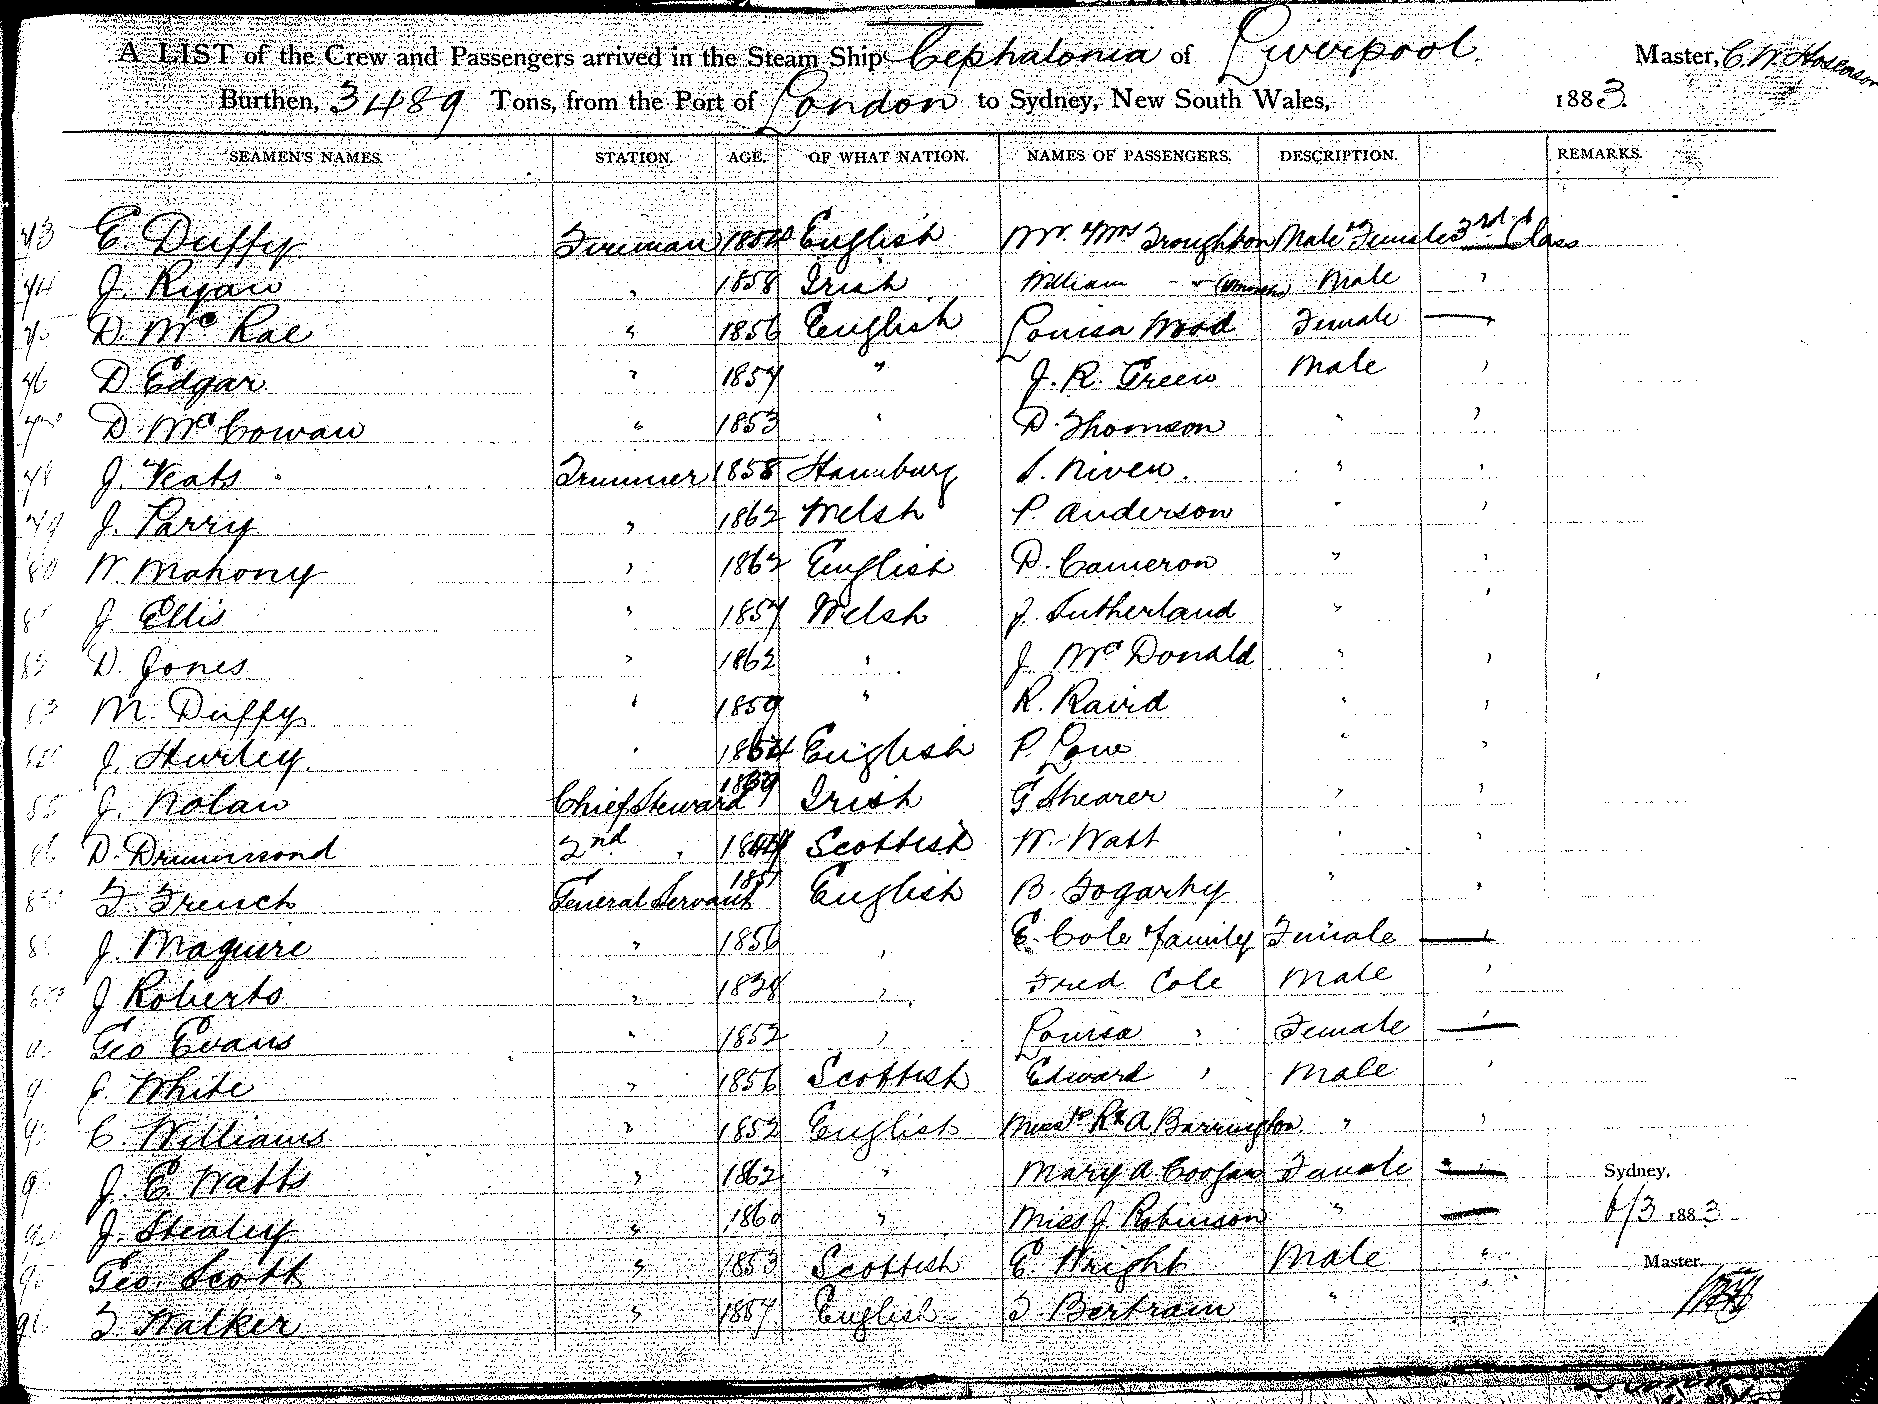 A LIST of the Crew and Passengers arrived in the Steam Ship Cephalonia of Liverpool. Master, C. W.
Burthen, 3489 Tons, from the Port of London to Sydney, New South Wales, 1883.
SEAMEN'S NAMES. STATION. AGE. OF WHAT NATION. NAMES OF PASSENGERS. DESCRIPTION. REMARKS.
43 E. Duffy Fireman English Mr. & Mrs Troughton Male & Females 3rd Class
44 J. Ryan " 1858 Irish William " Male "
45 D. Mc Rae " 1856 English Louisa Wood Female "
46 D Edgar " 1857 " J. R. Green Male "
D. McCowan " 1853 " D. Thomson " "
48 J. Yeats Trimmer 1858 Hamburg S. Niven. " "
49 J. Parry " 1862 Welsh P. Anderson " "
80 W. Mahony " 1862 English D. Cameron " "
J Ellis " 1857 Welsh J. Sutherland " "
D. Jones " 1862 " J Mc Donald " "
83 M. Duffy " 1859 " R. Raird " "
J. Hurley. " English P. Low " "
85 J. Nolan Chief Steward Irish G Shearer " "
86 D. Drummond 2nd " Scottish W. Watt " "
F. French General Servant 1857 English B. Fogarty " "
J. Maguire " 1856 " E. Cole & family Female "
J Roberts " 1828 " Fred Cole Male "
Geo Evans " 1852 " Louisa " Female "
White " 1856 Scottish Edward " Male "
C. Williams " 1852 English R & A Barrington " "
J. E. Watts " 1862 " Mary A Coogan Female " Sydney,
J. Stealey " 1860 " Miss J. Robinson " 6/3 1883
Geo. Scott " 1853 Scottish E. Wright Male " Master.
96 T Walker " 1857 English T Bertram " "